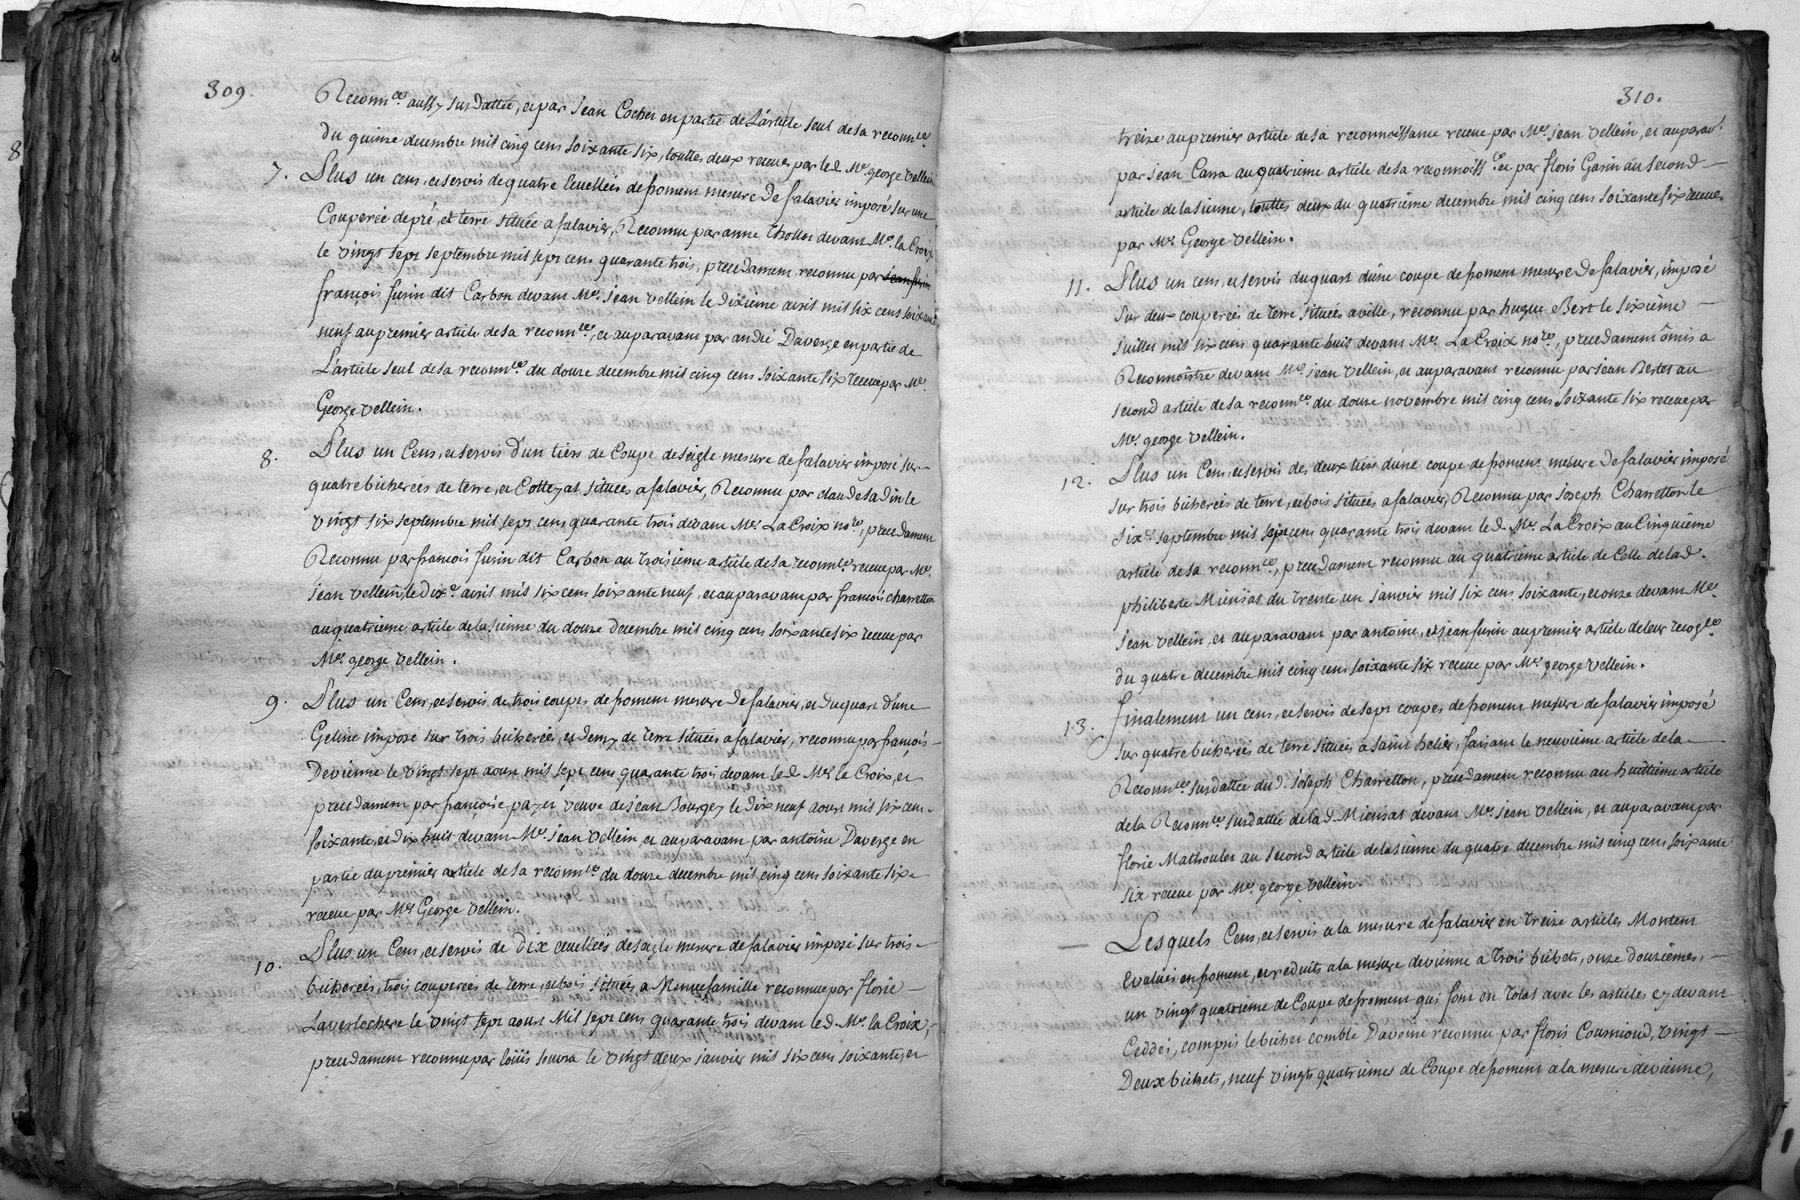 309.
Reconn.ce aussy susdattée, et par Jean Cochet en partie de L'article seul de sa reconn.ce
du quinze decembre mil cinq cens soixante six, touttes deux receues par led. Me. george Vellein
7. Plus un cens, et servis de quatre levellées de froment mesure De falavier imposé sur une
Couperée de pré, et terre située a falavier, Reconnu par anne Thollot devant Me. la Croix
le vingt sept septembre mil sept cens quarante trois, precedament reconnu par
françois furin dit Carbon devant Me. Jean Vellein le dixieme avril mil six cens soixante
neuf au premier article de sa reconn.ce, et auparavant par andré Daverge en partie de
L'article seul de sa reconn.ce du douze decembre mil cinq cens soixante six receue par Me.
George Vellein.
8. Plus un Cens, et servis d'un tiers de Coupe de seigle mesure de falavier imposé sur
quatre bicherées de terre, et Cotteyat situées a falavier, Reconnu par claude sadin le
vingt six septembre mil sept cens quarante trois devant Me. La Croix no.re, precedament
Reconnu par francois furin dit Carbon au troisieme article de sa reconn.ce receue par Me.
Jean Vellein, le dix.e avril mil six cens soixante neuf, et auparavant par francois charretton
au quatrieme article de la sienne du douze Decembre mil cinq cens soixante six receue par
Me. george Vellein.
9. Plus un Cens, et servis de trois coupes de froment mesure De falavier, et du quart d'une
Geline imposé sur trois bicherées, et demy de terre situées a falavier, reconnu par francois
Devienne le vingt sept aoust mil sept cens quarante trois devant led. Me. la Croix, et
precedament par françoise payet veuve de jean Bourgey le dix neuf aoust mil six cens
soixante, et dix huit devant Me. Jean Vellein, et auparavant par antoine Daverge en
partie du premier article de sa reconn.ce du douze decembre mil cinq cens soixante six
receue par Me. George Vellein.
10. Plus un Cens, et servis de Dix cevellées de seigle mesure de falavier imposé sur trois
bicherées, trois couperées de terre, et bois situées a Menuefamille reconnue par florie
Laverlochere le vingt sept aoust Mil sept cens quarante trois devant led. Me. la Croix,
precedament reconnu par loüis souvra le vingt deux janvier mil six cens soixante, et
310.
treize au premier article de sa reconnoissance receue par Me. Jean Vellein, et auparav.t
par jean Carra au quatrieme article de sa reconnoiss.ce et par floris Garin au second
article de la sienne, touttes deux du quatrieme decembre mil cinq cens soixante six receues
par Me. George Vellein.
11. Plus un cens, et servis du quart d'une coupe de froment mesure De falavier, imposé
sur deux couperées de terre situées aville, reconnu par hugue Bert le sixième
Juillet mil six cens quarante huit devant Me. La Croix no.re, precedament ômis a
Reconnoître devant Me. jean Vellein, et auparavant reconnu par jean Bertet au
second article de sa reconn.ce du douze novembre mil cinq cens soixante six receue par
Me. george Vellein.
12. Plus un Cens, et servis des deux tiers d'une coupe de froment mesure De falavier imposé
sur trois bicherées de terre, et bois situées a falavier, Reconnu par Joseph Charretton le
six.e septembre mil sept cens quarante trois devant led. Me. La Croix au Cinquième
article de sa reconn.ce, precedament reconnu au quatrieme article de Celle de lad.
philiberte Miensat du trente un janvier mil six cens soixante, et onze devant Me.
jean Vellein, et auparavant par antoine, et jean furin au premier article de leur recog.ce
du quatre decembre mil cinq cens soixante six receue par Me. george Vellein.
13. Finalement un cens, et servis de sept coupes de froment mesure de falavier imposé
sur quatre bicherées de terre situées a saint helier, faisant le neuvieme article de la
Reconn.ce susdattée du d. Joseph Charretton, precedament reconnu au huitieme article
de la Reconn.ce susdattée de la d. Miensat devant Me. jean Vellein, et auparavant par
florie Mathoulet au second article de la sienne du quatre decembre mil cinq cens soixante
six receue par Me. george Vellein.
Lesquels Cens, et servis a la mesure de falavier en treize articles Montent
Evalués en froment, et reduits a la mesure de vienne a trois bichets, onze douzièmes,
un vingt quatrieme de Coupe de froment qui font en total avec les articles cy devant
Ceddés, compris le bichet comble D'avoine reconnu par floris Cournioud, vingt
Deux bichets, neuf vingt quatriémes de Coupe de froment a la mesure de vienne,